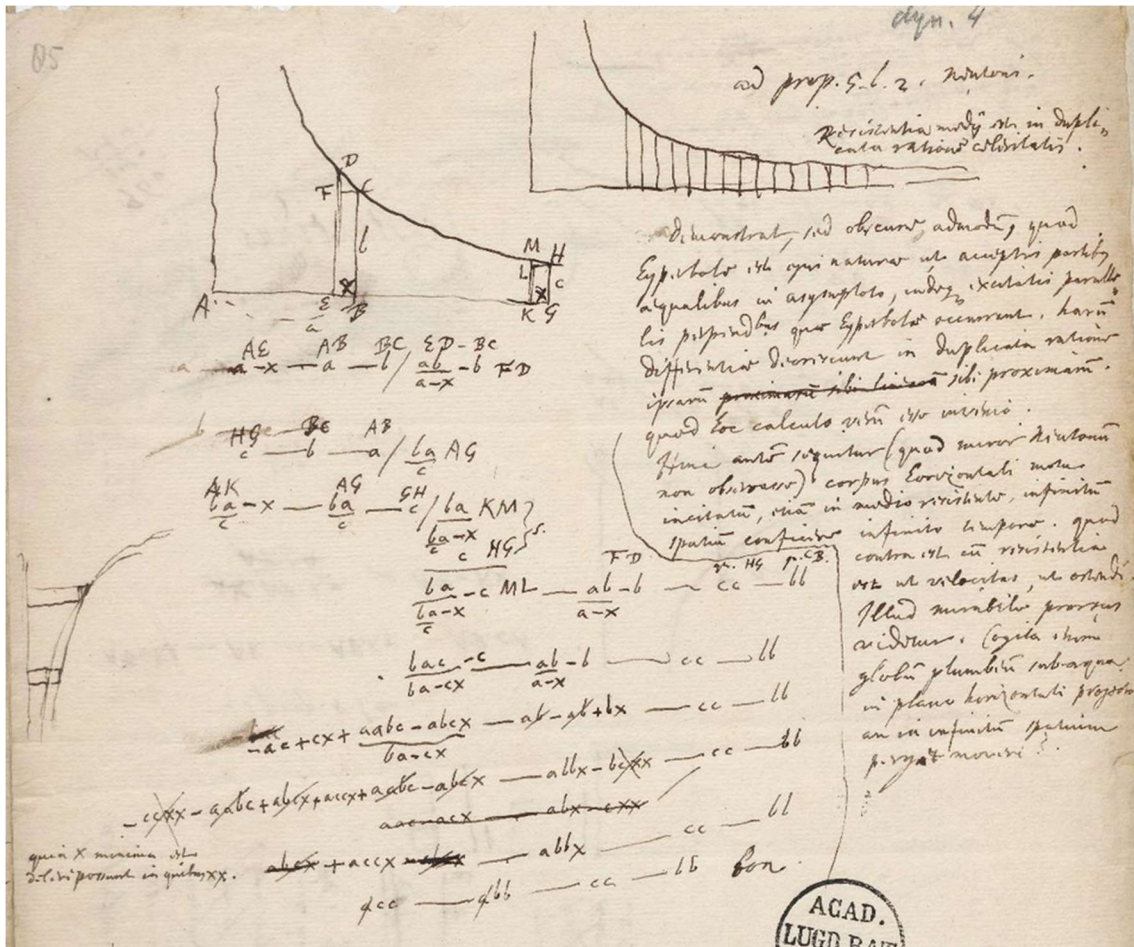 85
dyn. 4
ad prop. 5. l. 2. Neutoni.
Resistentia medij est in dupli-
cata ratione celeritatis.
D
F C
l
M H
L c
A E B K G
a
demonstrat, sed obscure admodum, quod
Hyperbolae est ea natura ut acceptis partibus
aequalibus in asymptoto, indeq. excitatis paralle-
lis perpendbus quae Hyperbolae occurrant, harum
differentiae decrescunt in duplicata ratione
ipsarum sibi proximarum.
quod hoc calculo verum esse invenio.
Hinc autem sequitur (quod miror Neutonum
non observasse) corpus horizontali motu
incitatum, etiam in medio resistente, infinitum
spatium conficere infinito tempore. quod
contra est cum resistentia
est ut velocitas, ut ostendi.
Illud mirabile prorsus
videtur. Cogita enim
globum plumbeum sub aqua
in plano horizontali projectum
an in infinitum spatium
pergat moveri?
AE AB BC ED - BC
a - x — a — b / ab/(a-x) - b FD
HG BC AB
c — b — a / ba/c AG
AK AG GH
ba/c - x — ba/c — c / ba/(ba/c - x) KM
c HG
FD qu. HG q. CB
ba/(ba/c - x) - c ML — ab/(a-x) - b — cc — bb
bac/(ba-cx) - c — ab/(a-x) - b — cc — bb
-ac + cx + (aabc - abcx)/(ba-cx) — ab - ab + bx — cc — bb
-ccxx - aabc + abcx + accx + aabc - abcx — abbx - bcxx — cc — bb
aac-acx — abx-cxx
quia x minima est
deleri possunt in quibus xx.
abcx + accx - abcx — abbx — cc — bb
acc — abb — cc — bb bon
ACAD.
LUGD.BAT